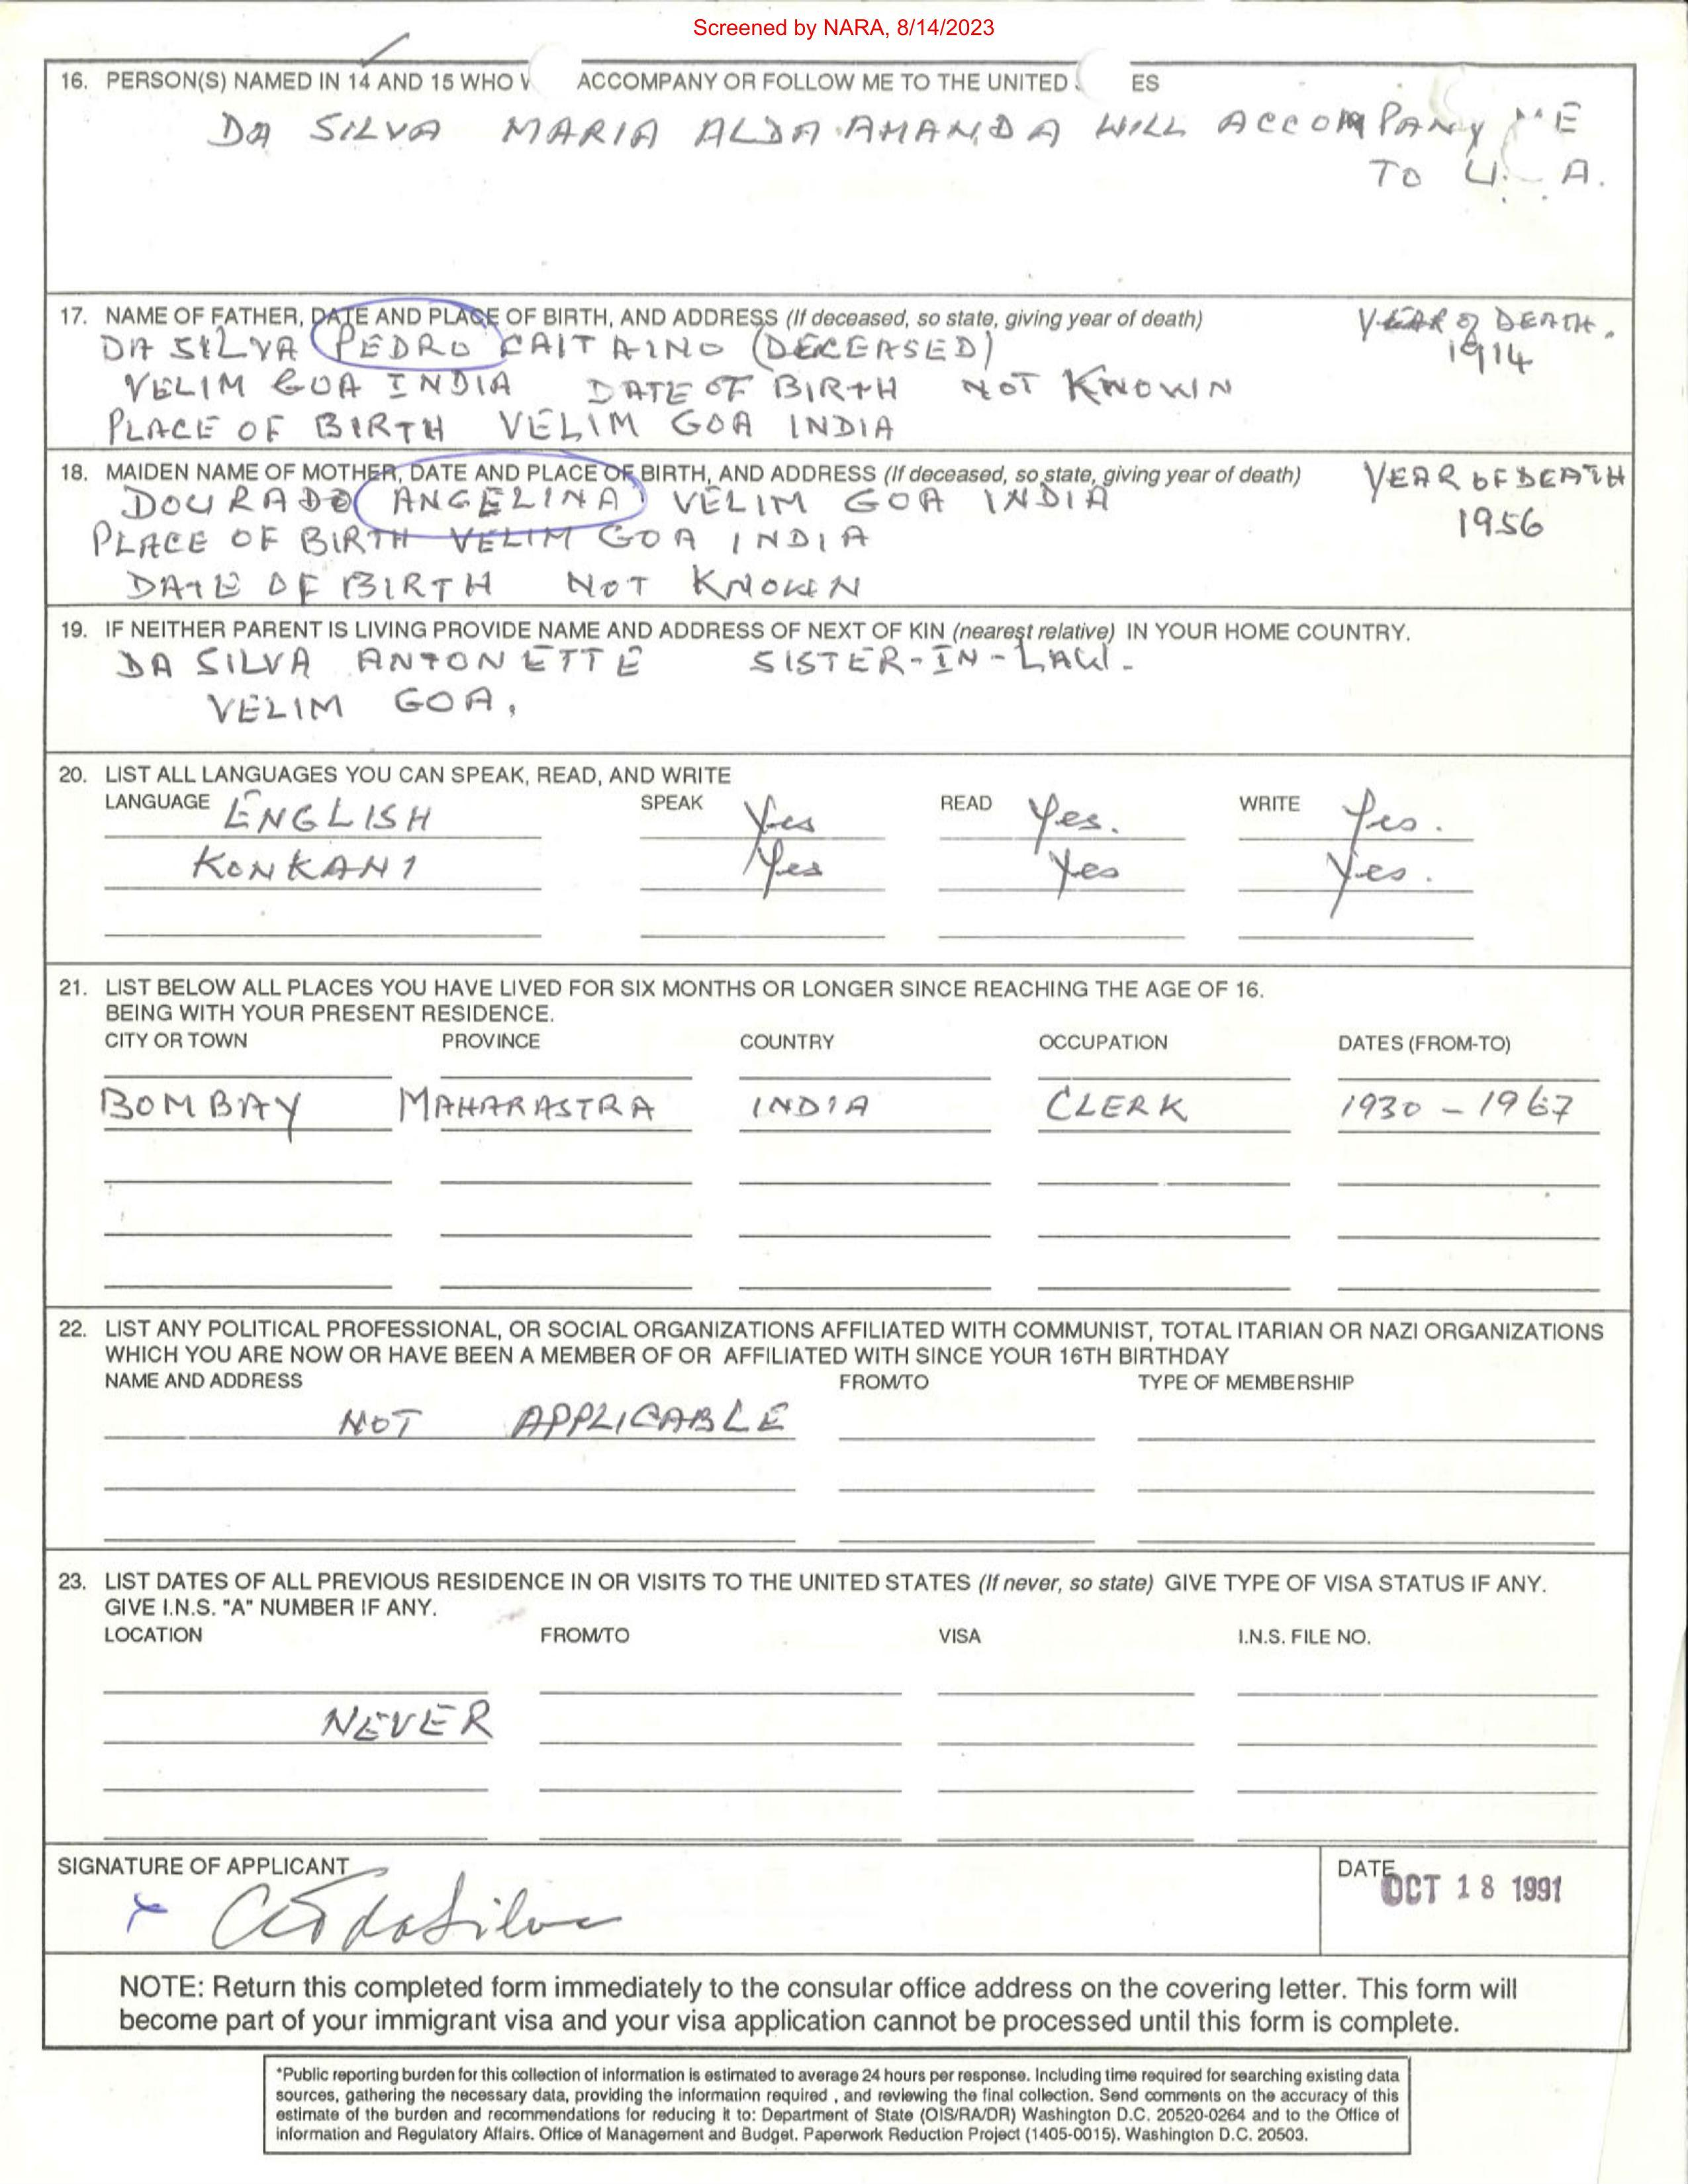 Screened by NARA, 8/14/2023
16. PERSON(S) NAMED IN 14 AND 15 WHO ACCOMPANY OR FOLLOW ME TO THE UNITED ES
DA SILVA MARIA ALDA AMANDA WILL ACCOMPANY ME
TO U. A.
17. NAME OF FATHER, DATE AND PLACE OF BIRTH, AND ADDRESS (If deceased, so state, giving year of death) YEAR OF DEATH.
DA SILVA PEDRO CAITAINO (DECEASED) 1914
VELIM GOA INDIA DATE OF BIRTH NOT KNOWN
PLACE OF BIRTH VELIM GOA INDIA
18. MAIDEN NAME OF MOTHER, DATE AND PLACE OF BIRTH, AND ADDRESS (If deceased, so state, giving year of death) YEAR OF DEATH
DOURADO ANGELINA VELIM GOA INDIA 1956
PLACE OF BIRTH VELIM GOA INDIA
DATE OF BIRTH NOT KNOWN
19. IF NEITHER PARENT IS LIVING PROVIDE NAME AND ADDRESS OF NEXT OF KIN (nearest relative) IN YOUR HOME COUNTRY.
DA SILVA ANTONETTE SISTER-IN-LAW.
VELIM GOA,
20. LIST ALL LANGUAGES YOU CAN SPEAK, READ, AND WRITE
LANGUAGE ENGLISH SPEAK Yes READ Yes. WRITE Yes.
KONKANI Yes Yes Yes.
21. LIST BELOW ALL PLACES YOU HAVE LIVED FOR SIX MONTHS OR LONGER SINCE REACHING THE AGE OF 16.
BEING WITH YOUR PRESENT RESIDENCE.
CITY OR TOWN PROVINCE COUNTRY OCCUPATION DATES (FROM-TO)
BOMBAY MAHARASTRA INDIA CLERK 1930 - 1967
22. LIST ANY POLITICAL PROFESSIONAL, OR SOCIAL ORGANIZATIONS AFFILIATED WITH COMMUNIST, TOTAL ITARIAN OR NAZI ORGANIZATIONS
WHICH YOU ARE NOW OR HAVE BEEN A MEMBER OF OR AFFILIATED WITH SINCE YOUR 16TH BIRTHDAY
NAME AND ADDRESS FROM/TO TYPE OF MEMBERSHIP
NOT APPLICABLE
23. LIST DATES OF ALL PREVIOUS RESIDENCE IN OR VISITS TO THE UNITED STATES (If never, so state) GIVE TYPE OF VISA STATUS IF ANY.
GIVE I.N.S. "A" NUMBER IF ANY.
LOCATION FROM/TO VISA I.N.S. FILE NO.
NEVER
SIGNATURE OF APPLICANT DATE OCT 18 1991
x daSilva
NOTE: Return this completed form immediately to the consular office address on the covering letter. This form will
become part of your immigrant visa and your visa application cannot be processed until this form is complete.
*Public reporting burden for this collection of information is estimated to average 24 hours per response. Including time required for searching existing data
sources, gathering the necessary data, providing the information required , and reviewing the final collection. Send comments on the accuracy of this
estimate of the burden and recommendations for reducing it to: Department of State (OIS/RA/DR) Washington D.C. 20520-0264 and to the Office of
information and Regulatory Affairs. Office of Management and Budget. Paperwork Reduction Project (1405-0015). Washington D.C. 20503.